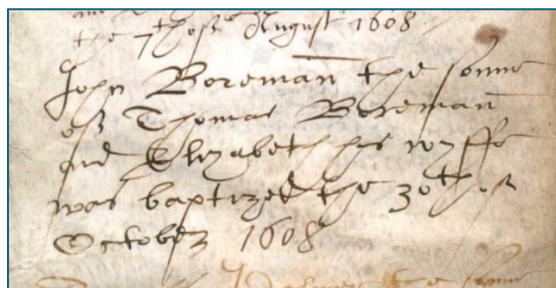 the 7th of August 1608
John Boreman the sonne
of Thomas Boreman
and Elizabeth his wyffe
was baptized the 30th of
October 1608
the sonne